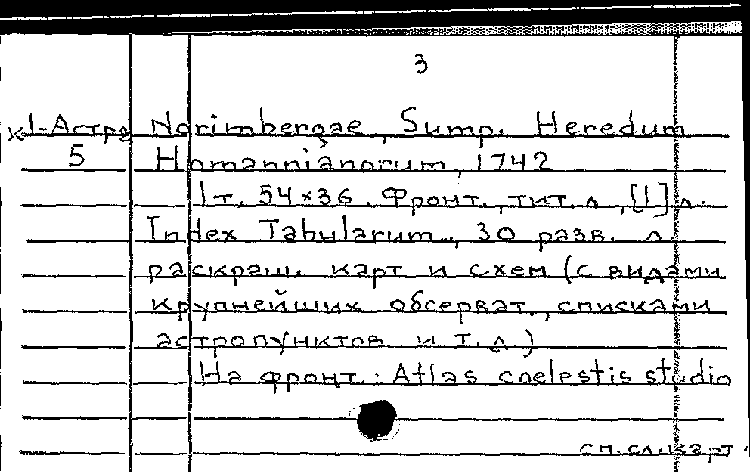 3
к1-Астро Norimbergae, Sump. Heredum
5 Homannianorum, 1742
1 т. 54×36. Фронт., тит. л., [1] л.
Index Tabularum, 30 разв. л.
раскраш. карт и схем (с видами
крупнейших обсерват., списками
астропунктов и т.д.)
На фронт.: Atlas coelestis studio
см. сл. карт.